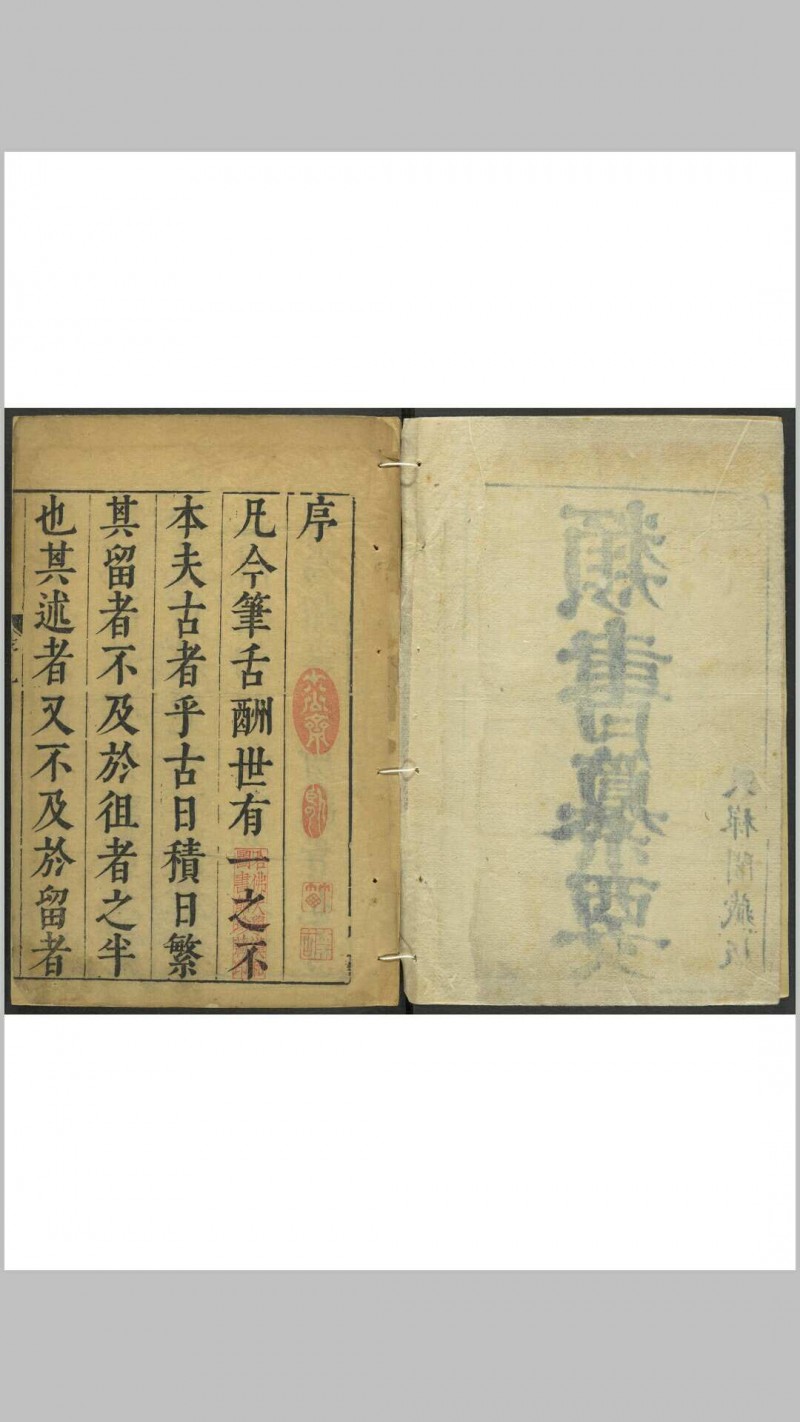 類書纂要
閣藏板
序
凡今筆舌酬世有一之不
本夫古者乎古日積日繁
其留者不及於徂者之半
也其述者又不及於留者